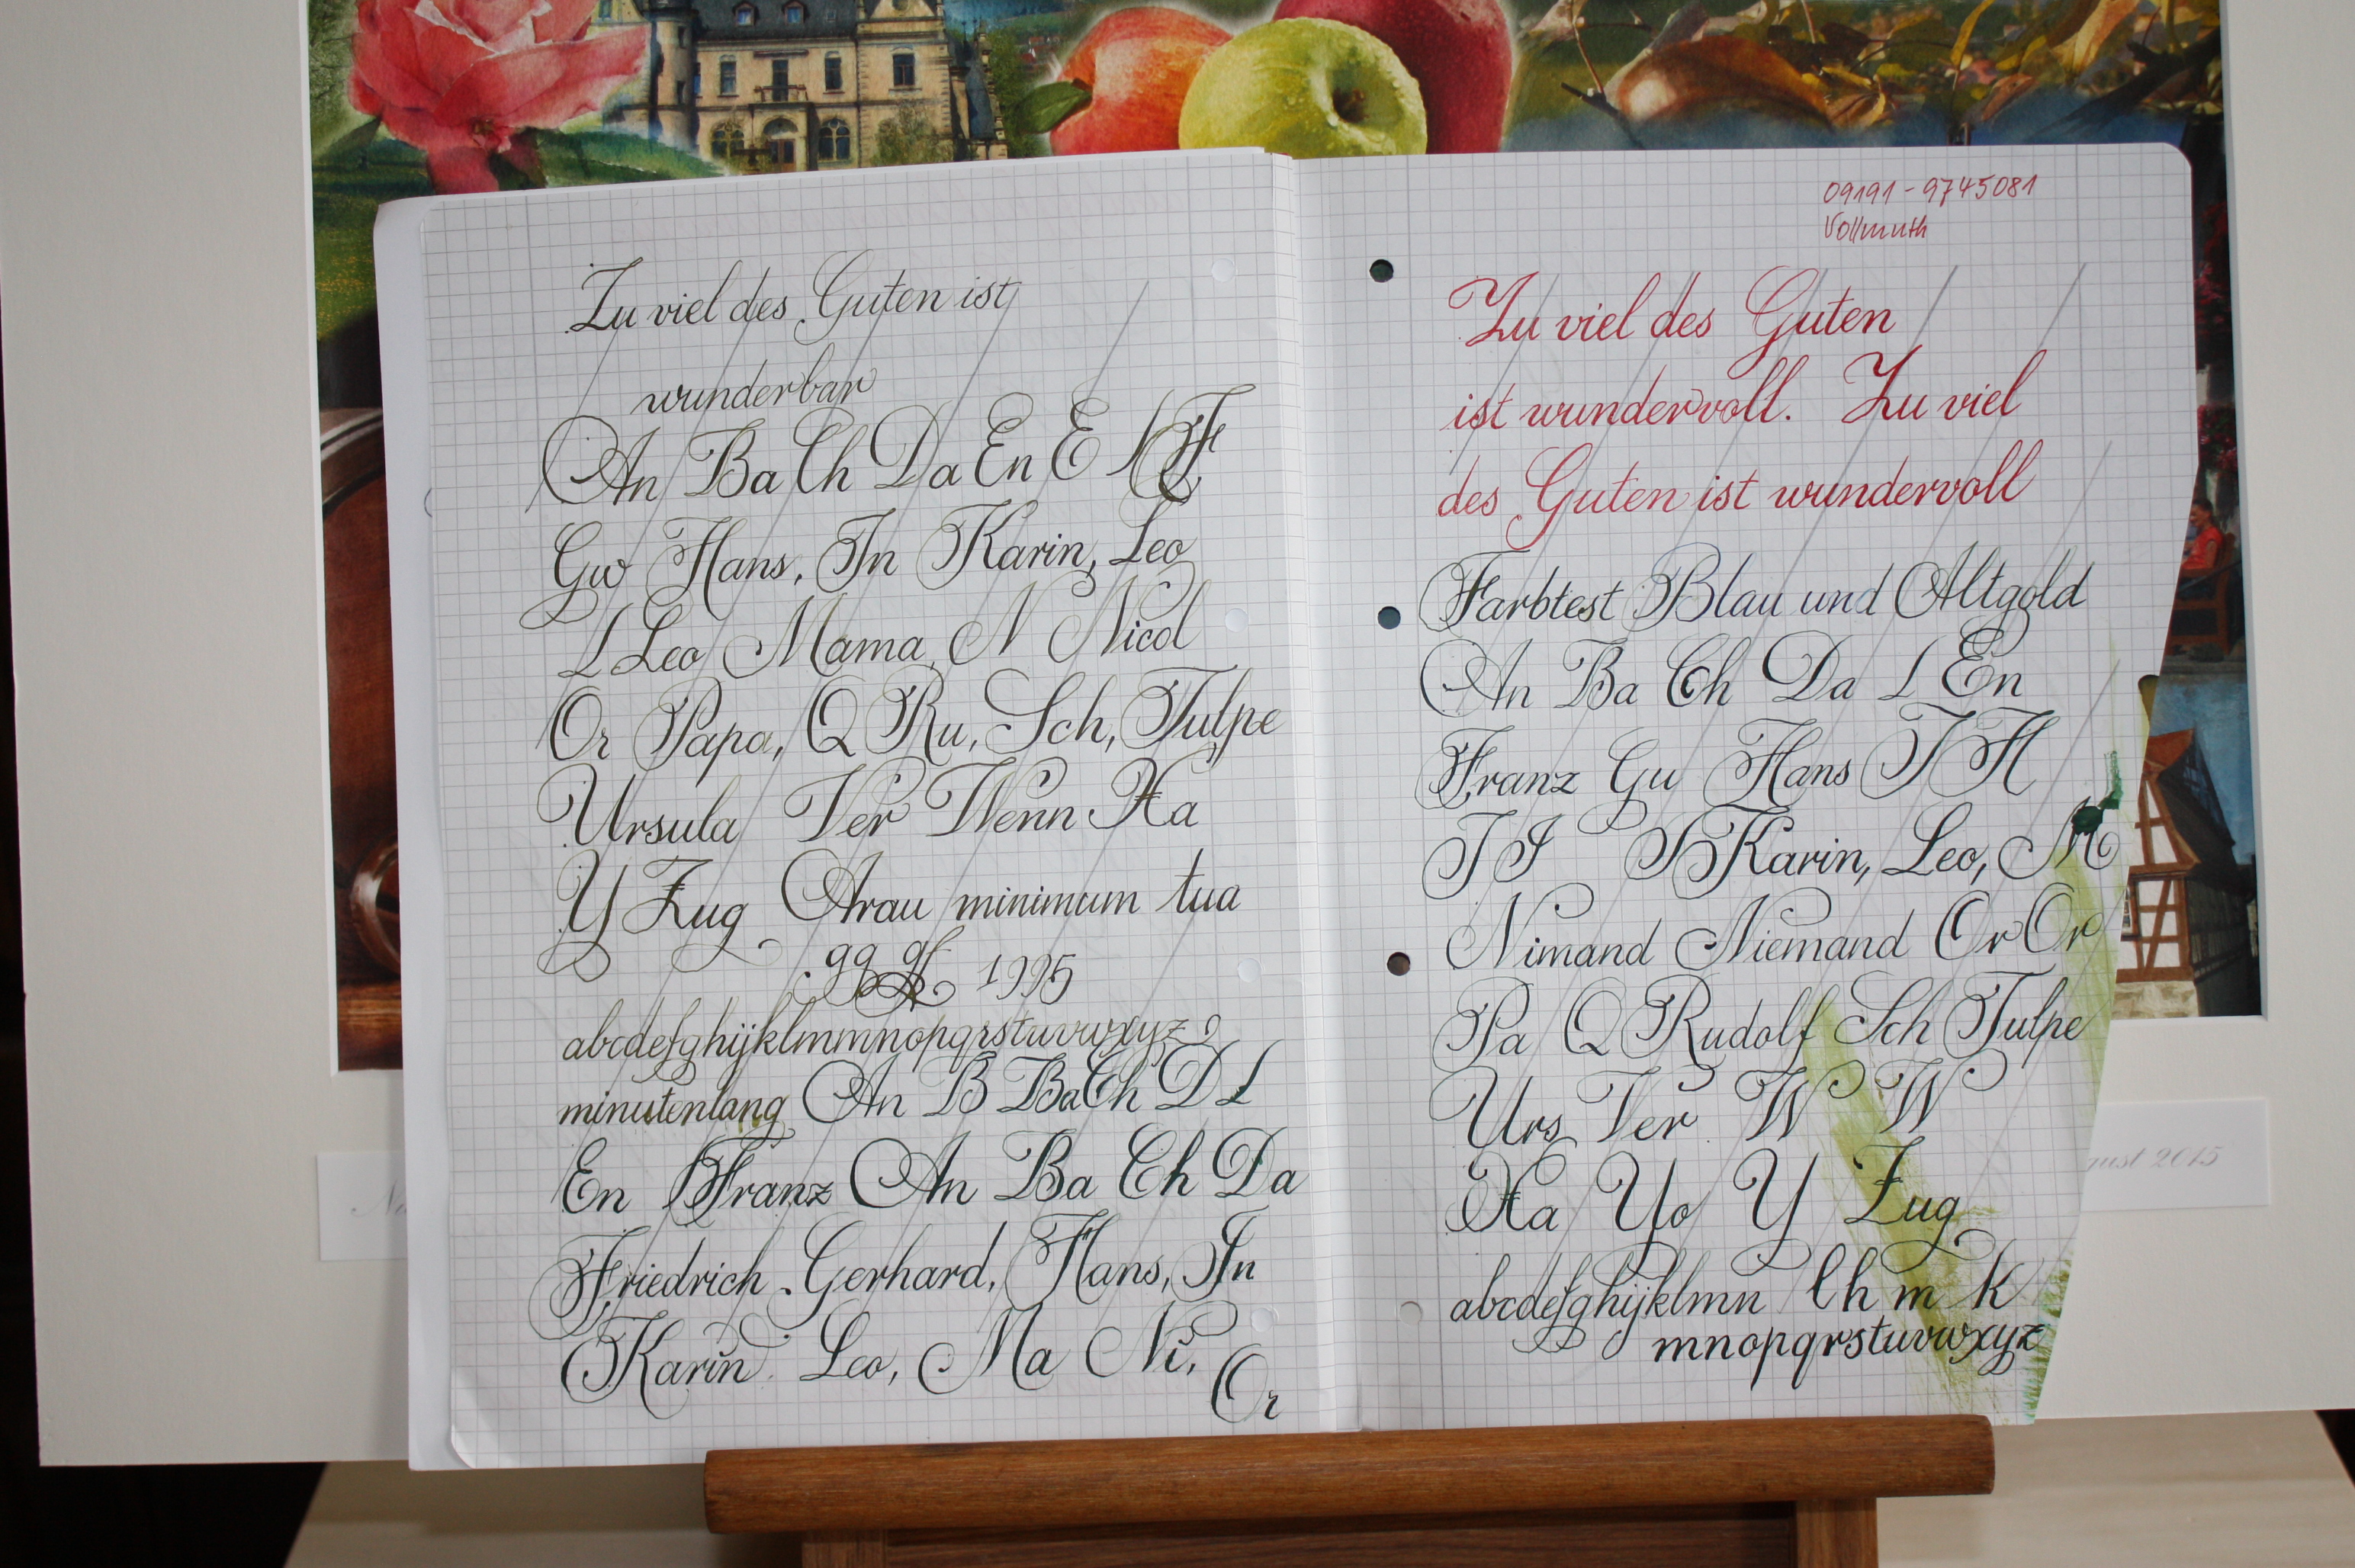 Zu viel des Guten ist
wunderbar
An Ba Ch Da En E F
Gw Hans, In Karin, Leo
L Leo Mama, N Nicol
Or Papa, Q Ru, Sch, Tulpe
Ursula Ver Wenn Xa
Y Zug Arau minimum tua
gg 1995
abcdefghijklmmnopqrstuvwxyz
minutenlang An B Ba Ch D L
En Franz An Ba Ch Da
Friedrich Gerhard, Hans, In
Karin Leo, Ma Ni,
Or
09191-9745081
Vollmuth
Zu viel des Guten
ist wundervoll. Zu viel
des Guten ist wundervoll
Farbtest Blau und Altgold
An Ba Ch Da L En
Franz Gu Hans T H
I I Karin, Leo, M
Nimand Niemand Or Or
Pa Q Rudolf Sch Tulpe
Urs Ver W W
Xa Yo Y Zug
abcdefghijklmn l h m k
mnopqrstuvwxyz
2015